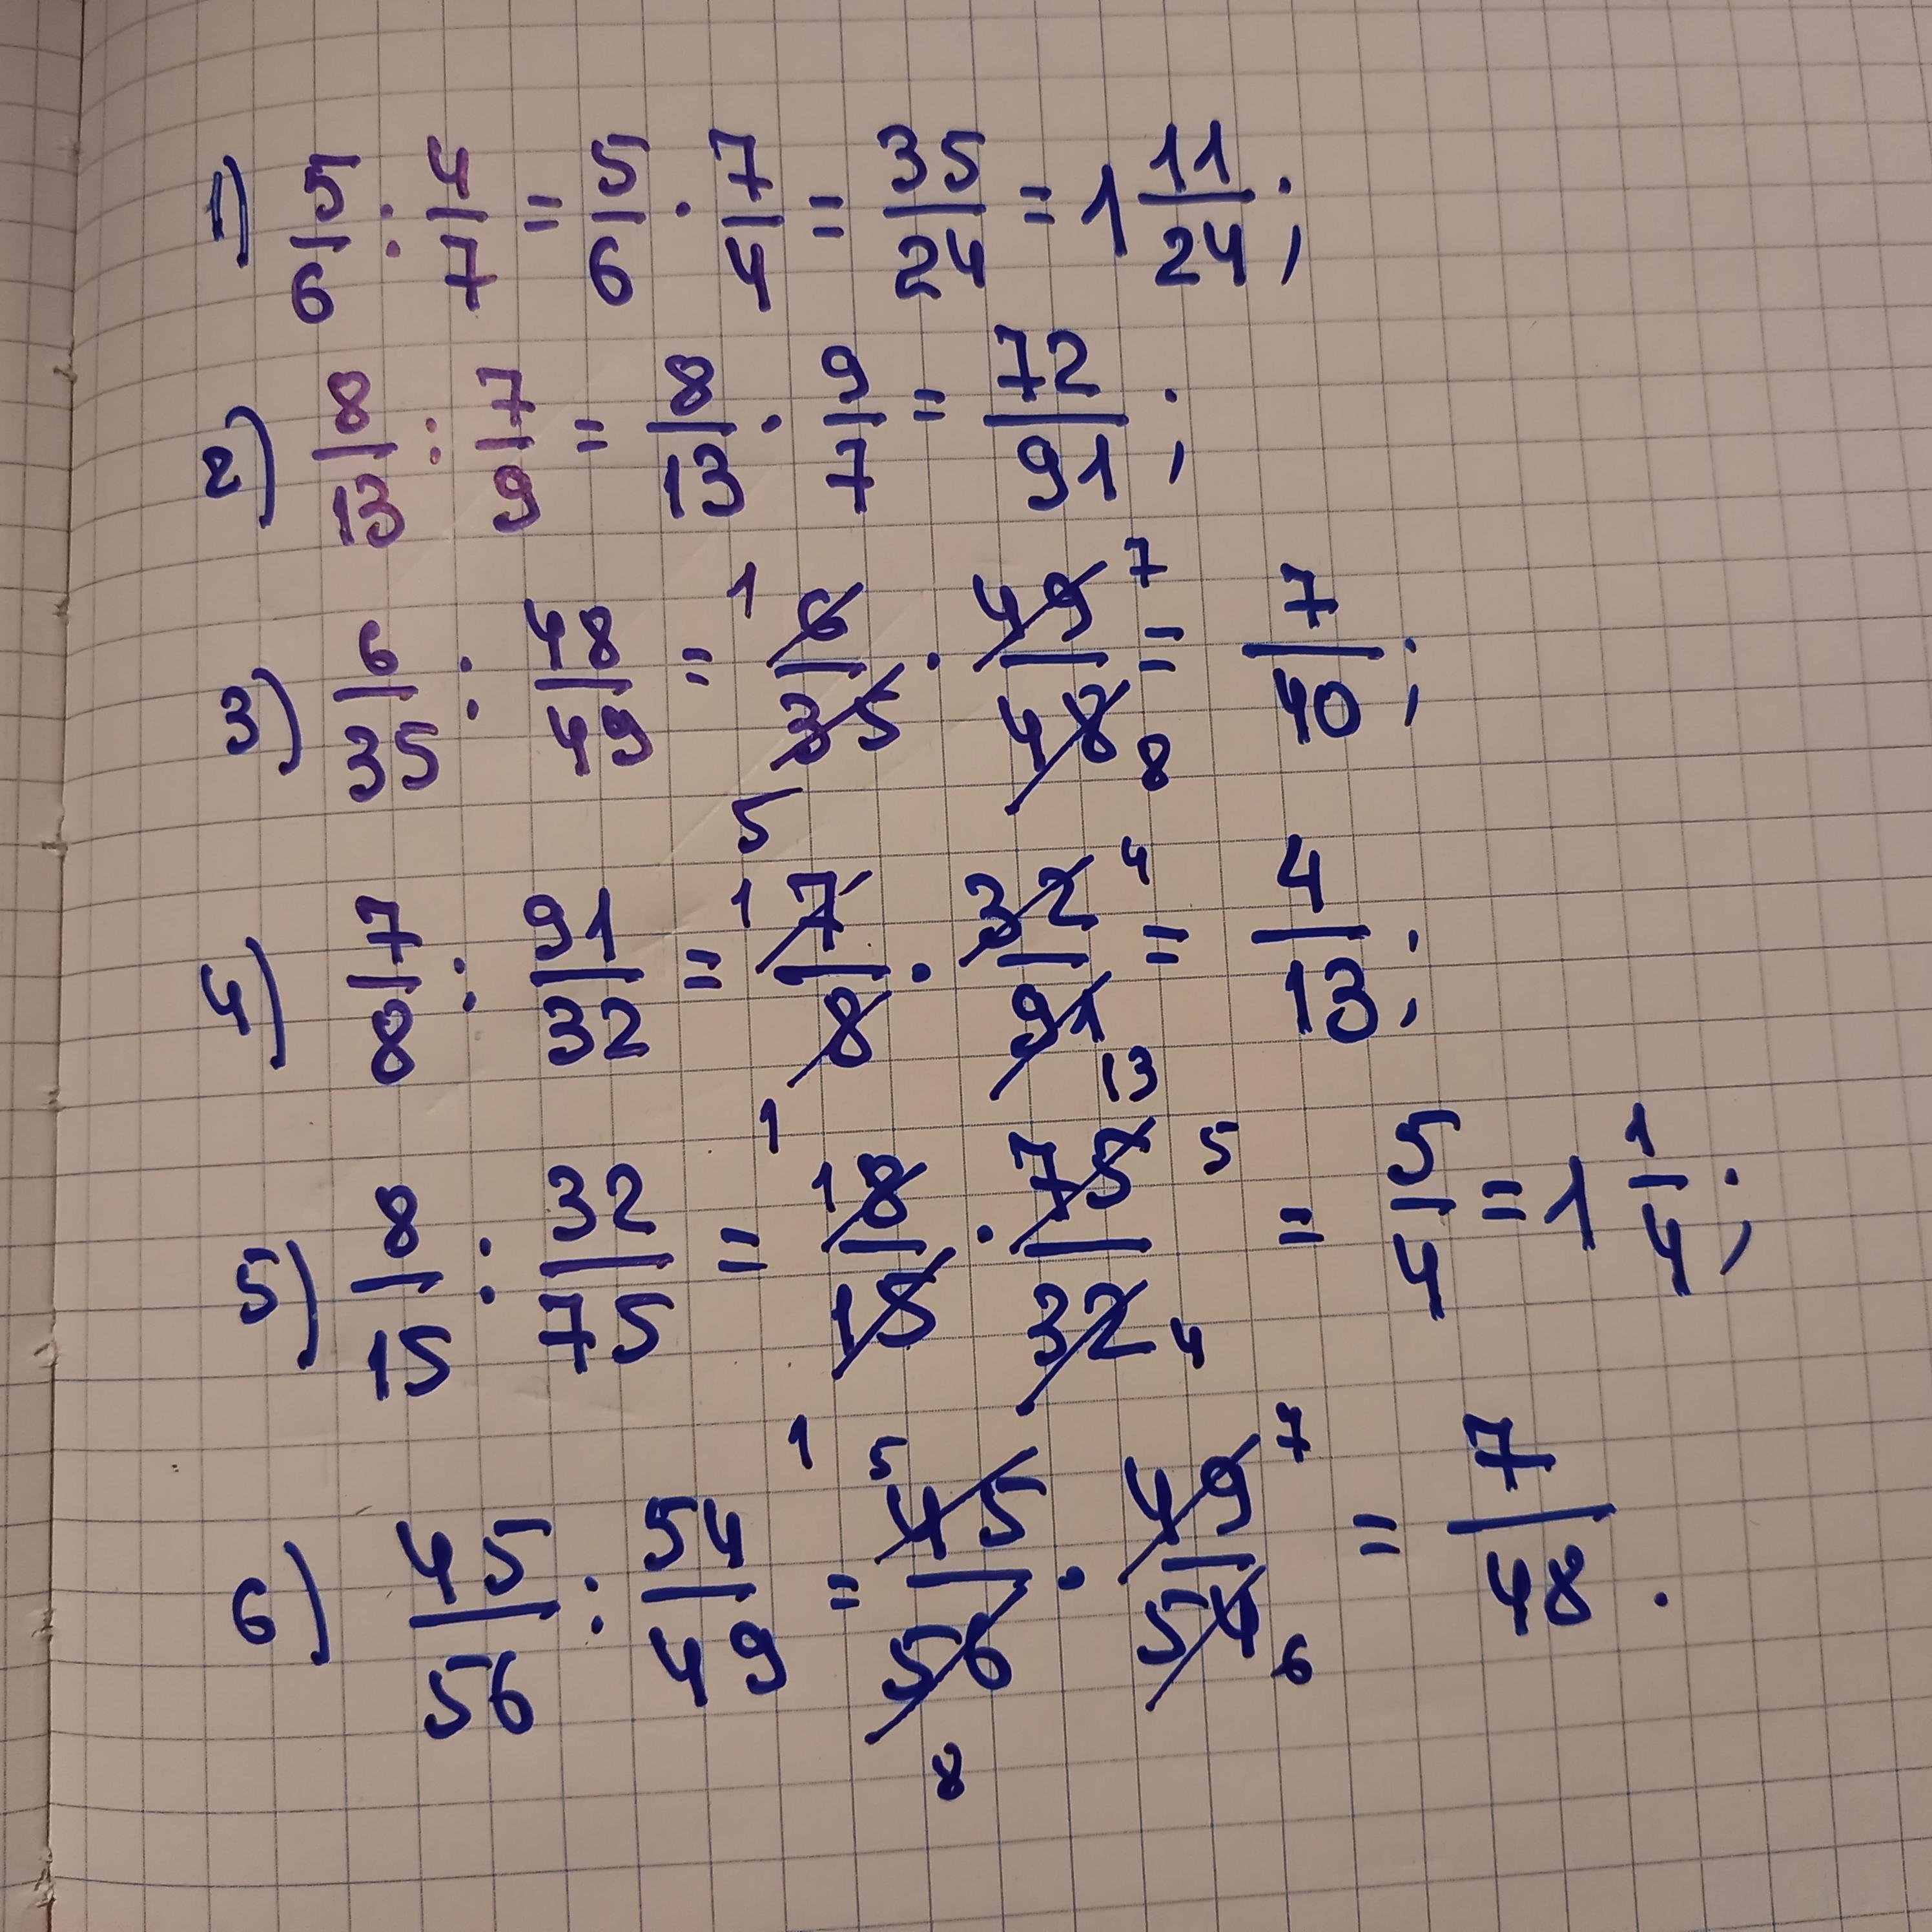 1) 5/6 : 4/7 = 5/6 · 7/4 = 35/24 = 1 11/24 ;
2) 8/13 : 7/9 = 8/13 · 9/7 = 72/91 ;
3) 6/35 : 48/49 = 1 6/35 5 · 49 7/48 8 = 7/40 ;
4) 7/8 : 91/32 = 1 7/8 1 · 32 4/91 13 = 4/13 ;
5) 8/15 : 32/75 = 1 8/15 1 · 75 5/32 4 = 5/4 = 1 1/4 ;
6) 45/56 : 54/49 = 5 45/56 8 · 49 7/54 6 = 7/48 .